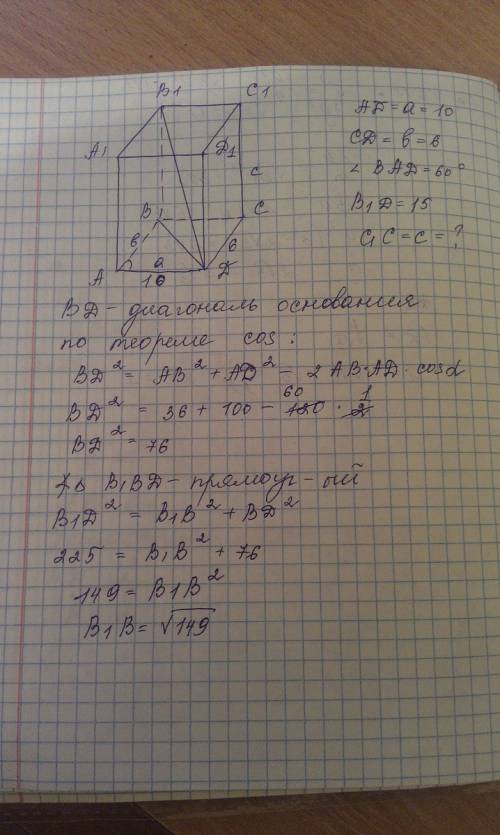 B1
C1
A1
D1
c
B
C
6
a
6
A
10
D
AD = a = 10
CD = b = 6
∠ BAD = 60°
B1D = 15
C1C = c = ?
BD - диагональ основания
по теореме cos:
BD² = AB² + AD² - 2 AB·AD·cosα
60 1
BD² = 36 + 100 - 120 · 2
BD² = 76
B1BD - прямоуг-ый
B1D² = B1B² + BD²
225 = B1B² + 76
149 = B1B²
B1B = √149